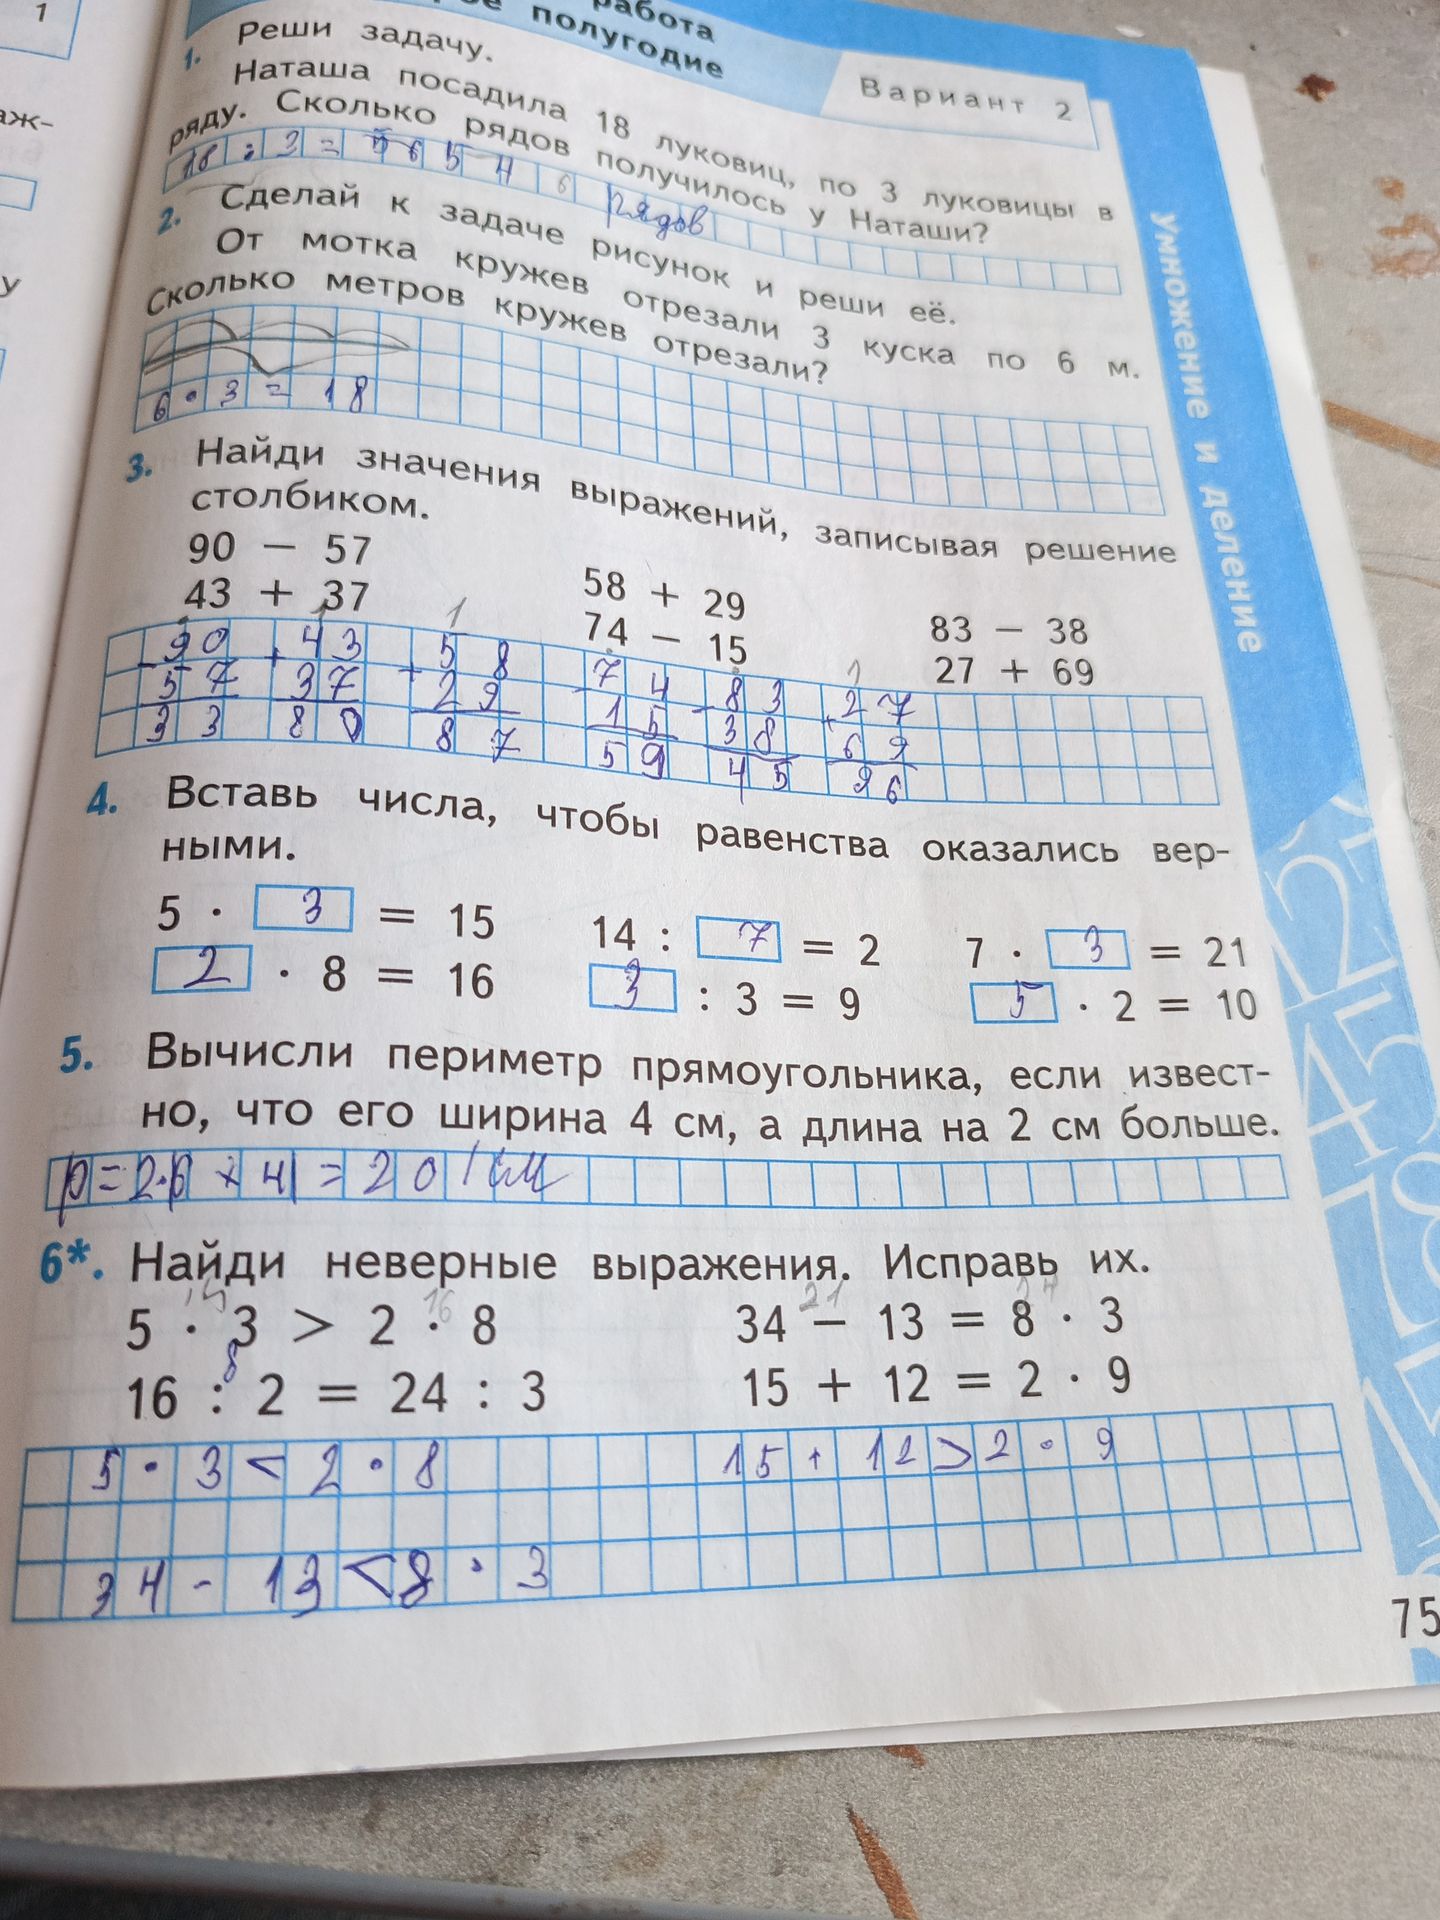 1
работа
полугодие
Вариант 2
1. Реши задачу.
Наташа посадила 18 луковиц, по 3 луковицы в
ряду. Сколько рядов получилось у Наташи?
18 : 3 = 6 5 4 6 рядов
2. Сделай к задаче рисунок и реши её.
От мотка кружев отрезали 3 куска по 6 м.
Сколько метров кружев отрезали?
6 · 3 = 18
3. Найди значения выражений, записывая решение
столбиком.
90 − 57 58 + 29 83 − 38
43 + 37 74 − 15 27 + 69
1 1
- 90 + 43 + 58 - 74 - 83 + 27
57 37 29 15 38 69
33 80 87 59 45 96
4. Вставь числа, чтобы равенства оказались вер-
ными.
5 · 3 = 15 14 : 7 = 2 7 · 3 = 21
2 · 8 = 16 3 : 3 = 9 5 · 2 = 10
5. Вычисли периметр прямоугольника, если извест-
но, что его ширина 4 см, а длина на 2 см больше.
p = 2·6 + 4 = 20 см
6*. Найди неверные выражения. Исправь их.
15 16 21 24
5 · 3 > 2 · 8 34 − 13 = 8 · 3
8
16 : 2 = 24 : 3 15 + 12 = 2 · 9
5 · 3 < 2 · 8 15 + 12 > 2 · 9
34 - 13 < 8 · 3
75
Умножение и деление
аж-
у